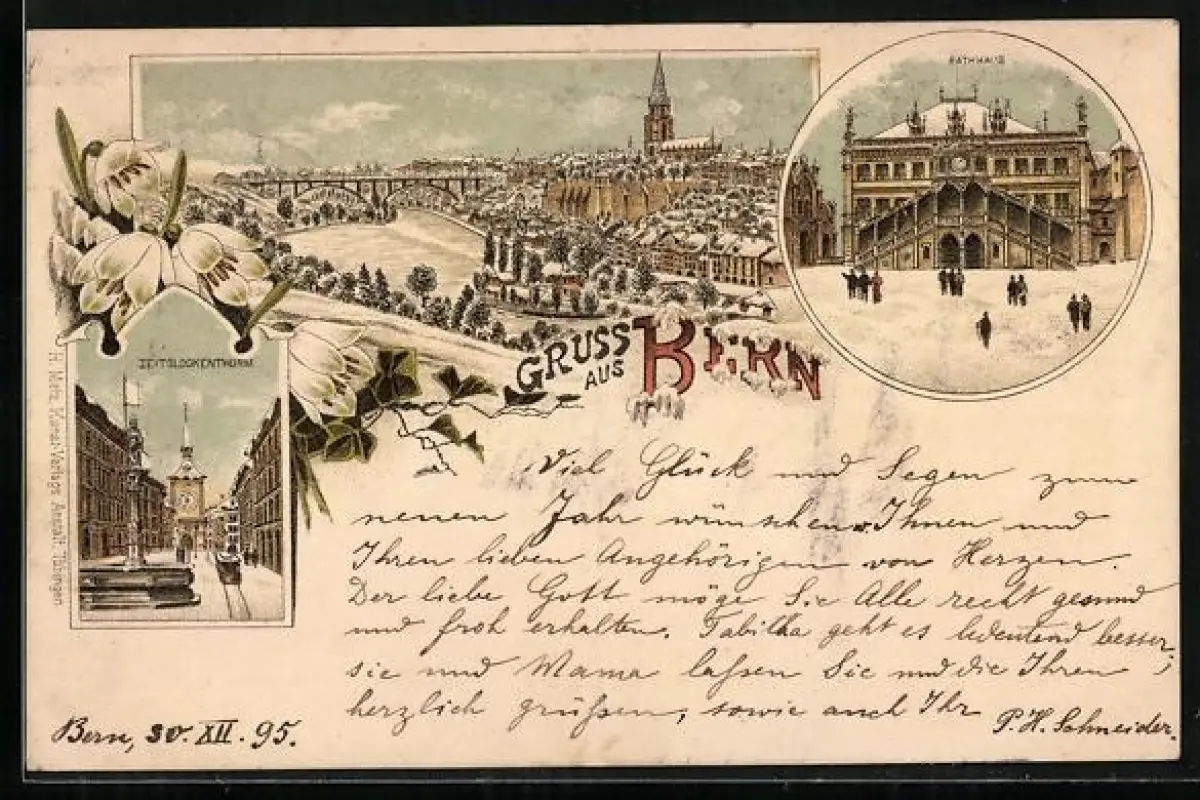 RATHHAUS
ZEITGLOCKENTHURM
GRUSS
AUS
BERN
Viel Glück und Segen zum
neuen Jahr wünschen Ihnen und
Ihren lieben Angehörigen von Herzen.
Der liebe Gott möge Sie Alle recht gesund
und froh erhalten. Tabitha geht es bedeutend besser;
sie und Mama laßen Sie und die Ihren
herzlich grüßen, sowie auch Ihr
P. H. Schneider.
Bern, 30. XII. 95.
Kunst-Verlags Anstalt